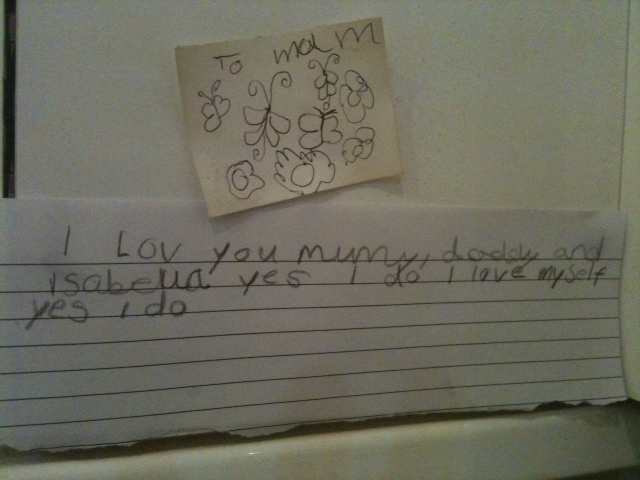 To mam
I Lov you mumy, daddy and
isabella yes I do I love myself
yes i do